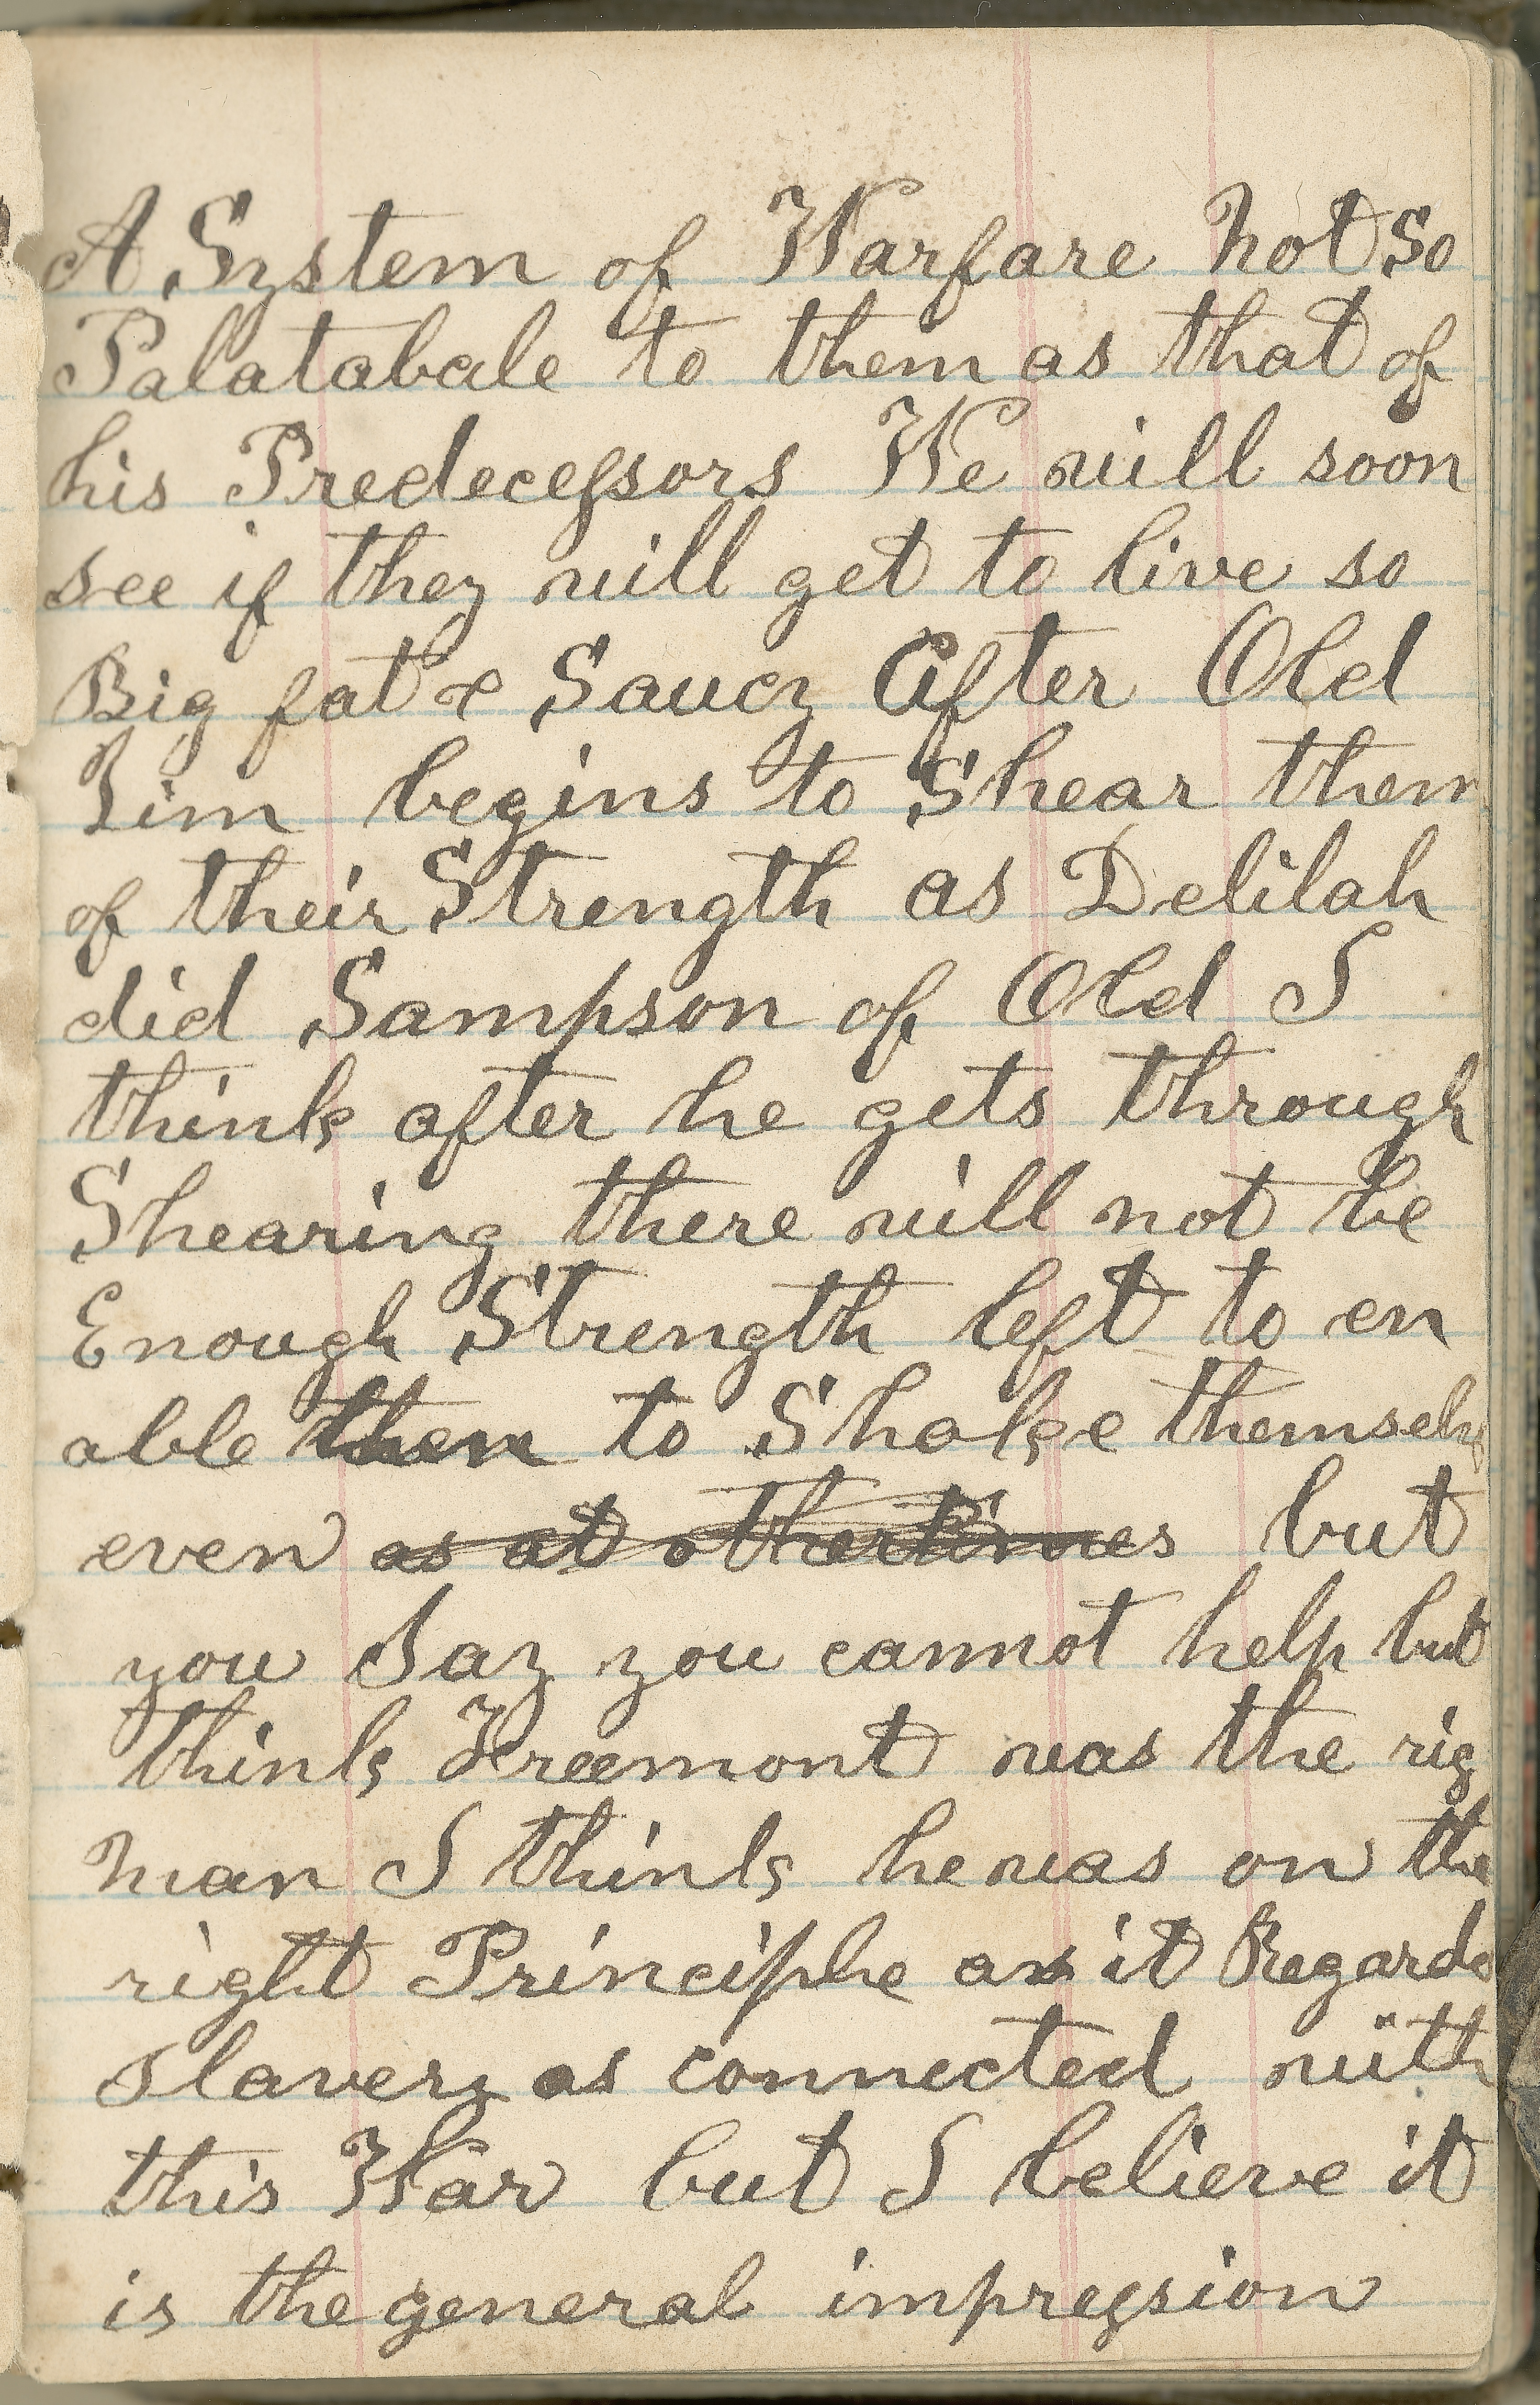 A System of Warfare Not So
Palatabale to them as that of
his Predecessors We will soon
see if they will get to live so
Big fat & Saucy After Old
Jim begins to Shear them
of their Strength as Delilah
did Sampson of Old I
think after he gets through
Shearing there will not be
Enough Strength left to en
able them to Shake themselv
even as at other times but
you Say you cannot help but
think Freemont was the rig
man I think he was on the
right Principle as it Regards
slavery as connected with
this War but I believe it
is the general impression